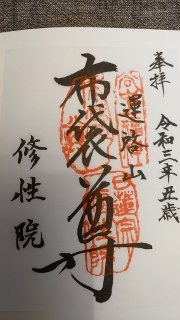 奉拝
令和三年丑歳
運啓山
布袋尊
修性院